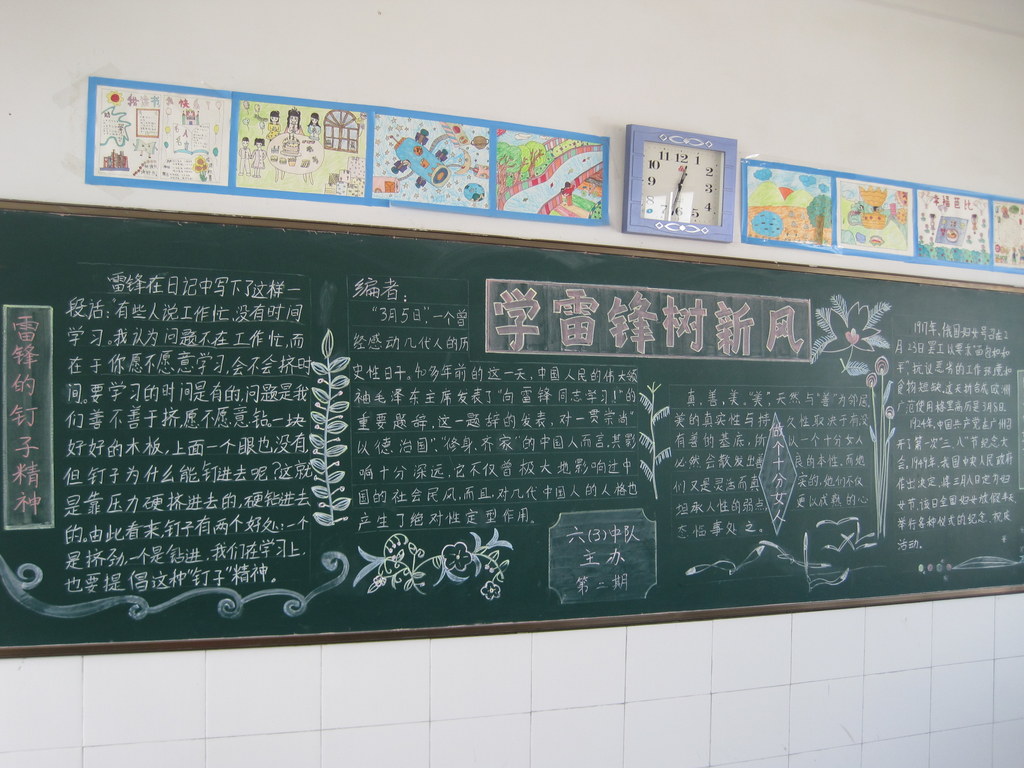 雷锋的钉子精神
雷锋在日记中写下了这样一
段话:"有些人说工作忙,没有时间
学习。我认为问题不在工作忙,而
在于你愿不愿意学习,会不会挤时
间。要学习的时间是有的,问题是我
们善不善于挤,愿不愿意钻。一块
好好的木板,上面一个眼也没有,
但钉子为什么能钉进去呢?这就
是靠压力硬挤进去的,硬钻进去
的。由此看来,钉子有两个好处:一个
是挤劲,一个是钻进,我们在学习上,
也要提倡这种"钉子"精神。
编者:
"3月5日",一个曾
经感动几代人的历
史性日子。40多年前的这一天,中国人民的伟大领
袖毛泽东主席发表了"向雷锋同志学习!"的
重要题辞,这一题辞的发表,对一贯崇尚
"以德治国"、"修身齐家"的中国人而言,其影
响十分深远,它不仅曾极大地影响过中
国的社会民风,而且,对几代中国人的人格也
产生了绝对性定型作用。
学雷锋树新风
六(3)中队
主办
第二期
真,善,美,"美",天然与"善"为邻居
美的真实性与持久性取决于有没
有善的基底,所以从一个十分女人
必然会散发出善良的本性,而她
们又是灵活而真实的,她们不仅
坦承人性的弱点更以成熟的心
态临事处之。
做个十分女人
1917年,俄国妇女号召在2
月23日罢工以要求"面包和和
平",抗议恶劣的工作环境和
食物短缺,这天转成欧洲
广范使用格里历历是3月8日。
1924年,中国共产党在广州召
开了第一次"三八"节纪念大
会,1949年,我国中央人民政府
作出决定,每年三月八日定为妇
女节,该日全国妇女放假半天
举行各种仪式的纪念,祝庆
活动。
11 12 1
10 2
9 3
8 4
7 6 5